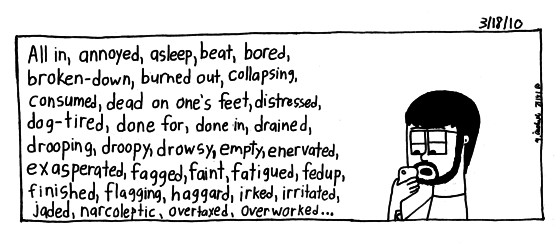 3/18/10
All in, annoyed, asleep, beat, bored,
broken-down, burned out, collapsing,
consumed, dead on one's feet, distressed,
dog-tired, done for, done in, drained,
drooping, droopy, drowsy, empty, enervated,
exasperated, fagged, faint, fatigued, fed up,
finished, flagging, haggard, irked, irritated,
jaded, narcoleptic, overtaxed, overworked...